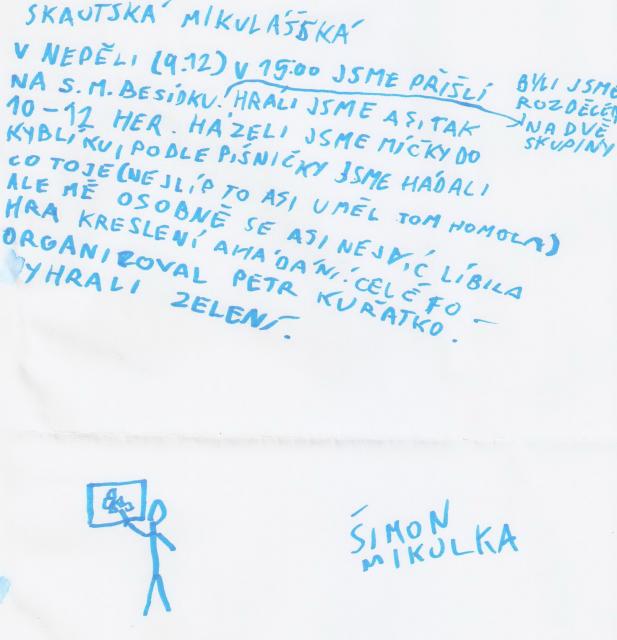 SKAUTSKÁ MIKULÁŠSKÁ
V NEDĚLI (9.12) V 19:00 JSME PŘIŠLI
BYLI JSME
ROZDĚLEN
NA DVĚ
SKUPINY
NA S.M. BESÍDKU. HRÁLI JSME ASI TAK
10-12 HER. HÁZELI JSME MÍČKY DO
KYBLÍKU, PODLE PÍSNIČKY JSME HÁDALI
CO TO JE (NEJLÍP TO ASI UMĚL TOM HOMOLA)
ALE MĚ OSOBNĚ SE ASI NEJVÍC LÍBILA
HRA KRESLENÍ A HÁDÁNÍ. CELÉ TO
ORGANIZOVAL PETR KUŘÁTKO.
VYHRALI ZELENÍ.
ŠIMON
MIKULKA